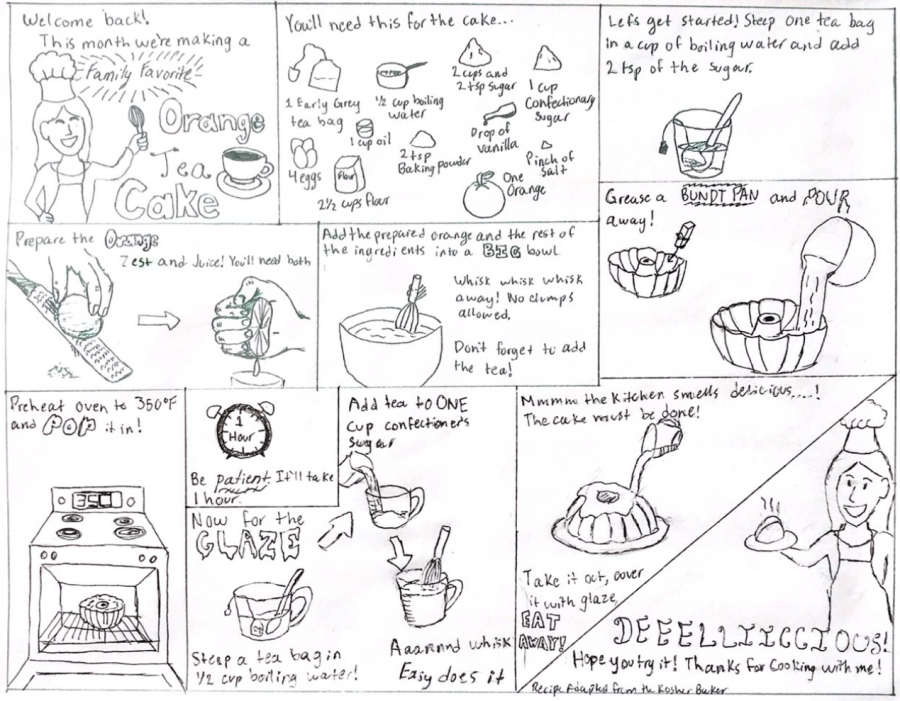 Welcome back!
This month we're making a
Family Favorite
Orange
Tea
Cake
You'll need this for the cake...
1 Early Grey
tea bag
1/2 cup boiling
water
2 cups and
2 tsp sugar
1 cup
Confectionary
sugar
1 cup oil
4 eggs
Flour
2 1/2 cups flour
2 tsp
Baking powder
Drop of
vanilla
Pinch of
salt
One
Orange
Let's get started! Steep one tea bag
in a cup of boiling water and add
2 tsp of the sugar.
Prepare the Orange
Zest and Juice! You'll need both
Add the prepared orange and the rest of
the ingredients into a BIG bowl.
Whisk whisk whisk
away! No clumps
allowed.
Don't forget to add
the tea!
Grease a BUNDT PAN and POUR
away!
Preheat oven to 350°F
and POP it in!
350
1
Hour
Be patient. It'll take
1 hour.
Now for the
GLAZE
Steep a tea bag in
1/2 cup boiling water!
Add tea to ONE
cup confectioner's
sugar
Aaaannnd whisk
Easy does it
Mmmmm the kitchen smells delicious.....!
The cake must be done!
Take it out, cover
it with glaze,
EAT
AWAY!
DEEELLIICCIOUS!
Hope you try it! Thanks for cooking with me!
Recipe Adapted from the Kosher Baker